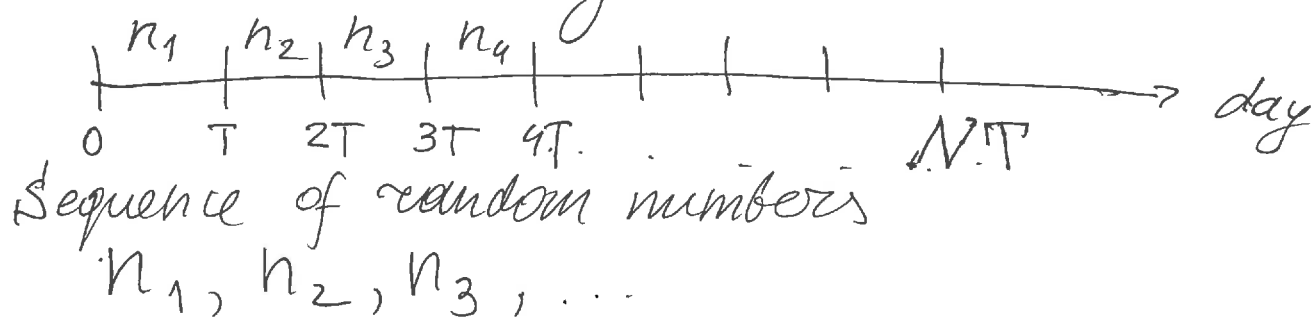 n₁ n₂ n₃ n₄
0 T 2T 3T 4T. . . N.T day
Sequence of random numbers
n₁, n₂, n₃, ...